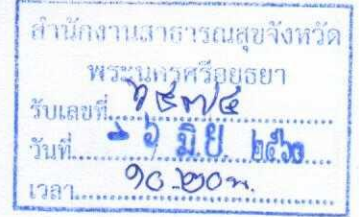 สำนักงานสาธารณสุขจังหวัด
พระนครศรีอยุธยา
รับเลขที่ ๖๕๗๔
วันที่ - ๖ มิ.ย. ๒๕๖๐
เวลา ๑๐.๒๐ น.